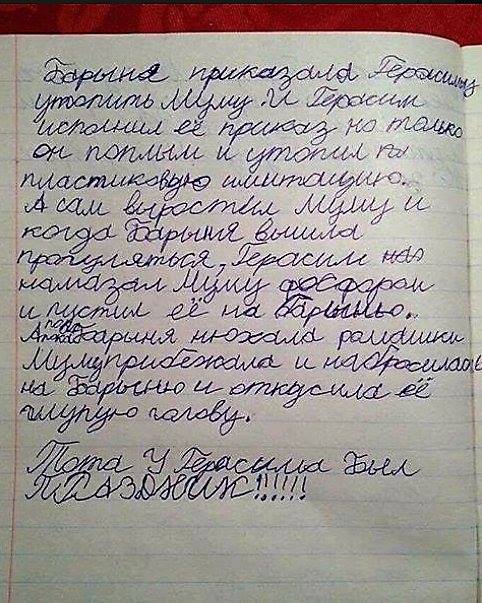 Барыня приказала Герасиму
утопить Муму. И Герасим
исполнил её приказ но только
он поплым и утопил
пластиковую имитацию.
А сам выростел Муму и
когда Барыня вышла
прогуляться, Герасим
намазал Муму фосфаром
и пустил её на Барыню.
пока Барыня нюхала ромашки
Муму прибежала и набросилась
на Барыню и откусила её
глупую голову.
Тота У Герасима Был
ПРАЗДНИК!!!!!!